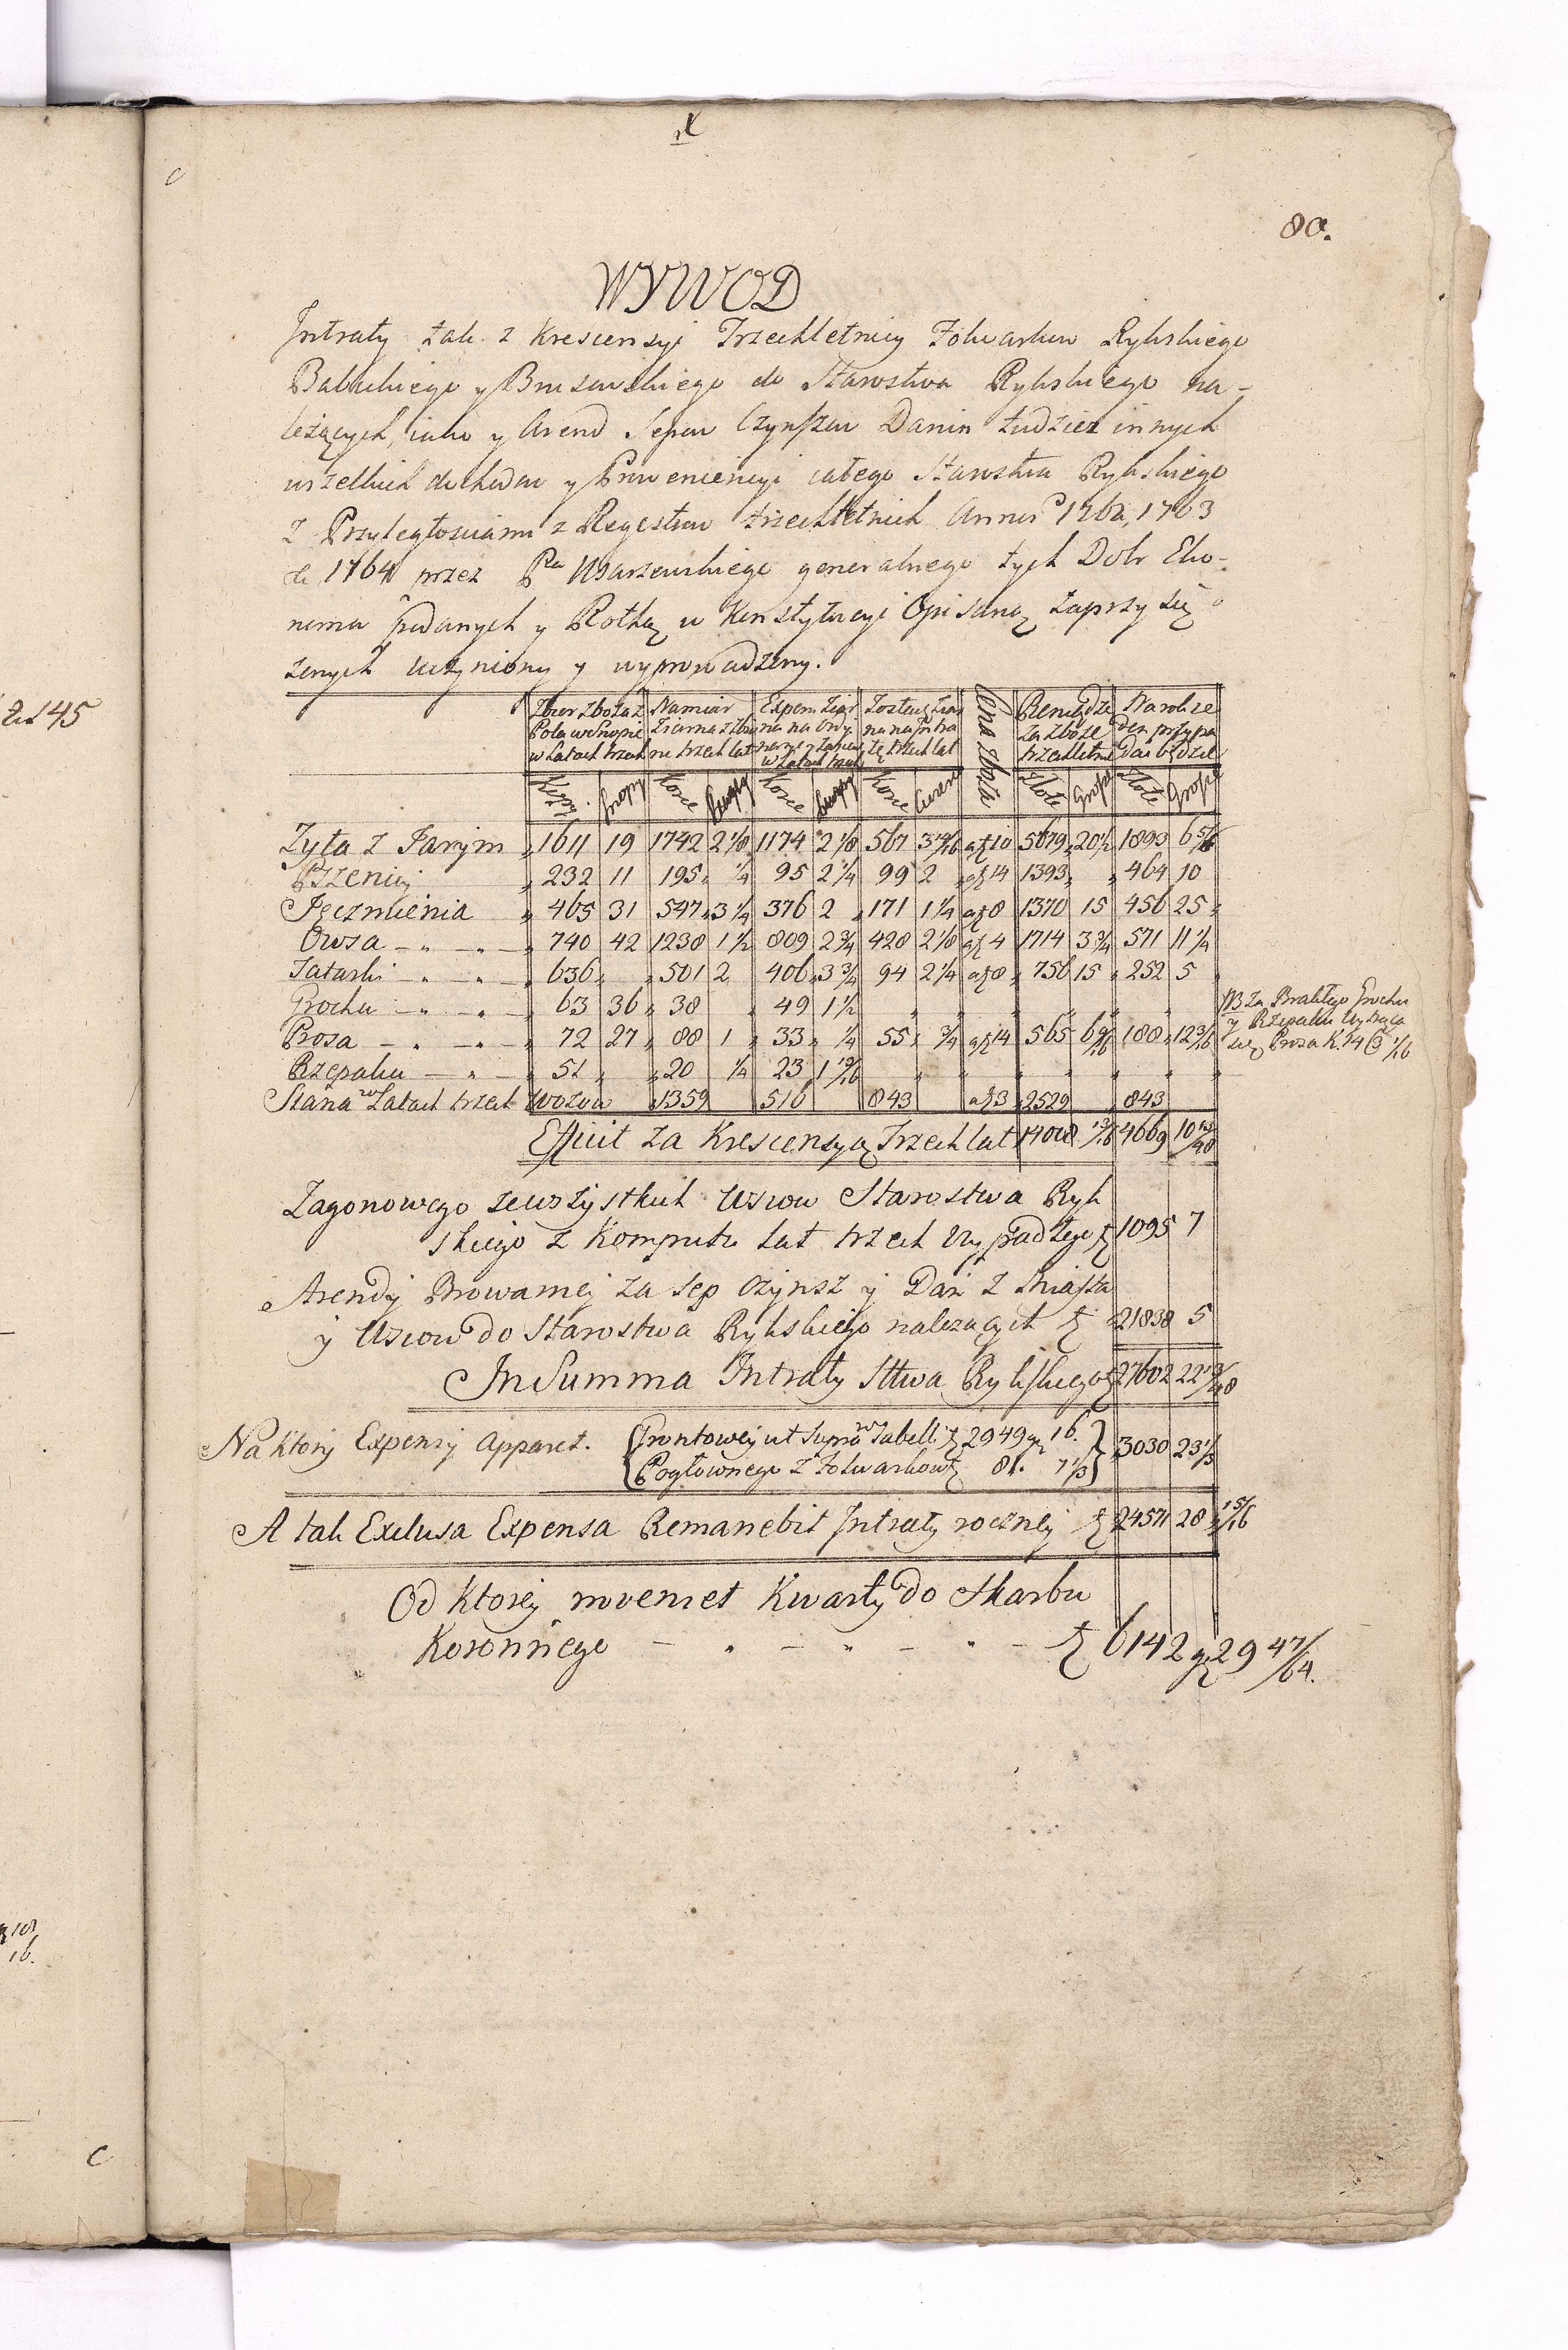 80.
WYWOD
Jntraty tak z Krescensyi Trzechletniey Folwarkow Rykskiego
Babuckiego y Brusowskiego do Starostwa Rykskiego na-
leżących, iako y Arend Sepow Czynszow Danin tudziez innych
wszelkich dochodow y Proweniencyi całego Starostwa Rykskiego
z Przyległosciami z Regestrow trzechletnich Annis 1762, 1763
et 1764 przez Pna generalnego tych Dobr Eko-
noma podanych y Rothą w Konstytucyi Opisaną zaprzysię
zonych uczyniony y wyprowadzony.
Zbior zboża z Pola w Snopie w Latach trzech | Namiar Ziarna z zbioru trzech lat | Expens Ziarna na Ordyn: y zasiew w Latach trzech | Zostaie Ziarna na Jntratę trzech lat | Cena Zboża | Pieniądze za zboże trzechletnie | Na rok ieden przypadać będzie
Kopy | Snopy | Korce | Korce | Korce | Złote | Grosze | Złote | Grosze
Zyta z Jarym 1611 19 1742 2 1/8 1174 2 1/8 567 a zł 10 5679 20 1/2 1893 6 5/6
Pszenicy 232 11 195 1/4 95 2 1/4 99 2 a zł 14 1393 464 10
Jęczmienia 465 31 547 3 1/4 376 2 171 1 1/4 a zł 8 1370 15 456 25
Owsa 740 42 1238 1 1/2 809 2 3/4 428 2 1/8 a zł 4 1714 3 3/4 571 11 1/4
Tatarki 636 501 2 406 3 3/4 94 2 1/4 a zł 8 756 15 252 5
Grochu 63 36 38 49 1 1/2
Prosa 72 27 88 1 33 1/4 55 3/4 a zł 14 565 6 9/16 188 12 3/16
NB Za Brakłego Grochu
y Rzepaku Wytrąca
się Prosa K. 14
Rzepaku 51 20 1/4 23 1
Siana w Latach trzech Wozow 1359 516 843 a zł 3 2529 843
Efficit za Krescensyą Trzech lat 14008 4669 10
Zagonowego zewszystkich Wsiow Starostwa Ryk
skiego z Komputu Lat trzech Wypadłego zł 1095 7
Arendy Browarney za Sep Czynsz y Dań z Miasta
y Wsiow do Starostwa Rykskiego należących zł 21838 5
JnSumma Jntraty Sttwa Rykskiego zł 27602 22 13/48
Na Ktory Expensy Apparet. Gruntowey ut Supra w Tabelli zł 2949 gr 16.
Pogłownego z Folwarkow zł 81. 7 1/3
3030 23 1/3
A tak Exclusa Expensa Remanebit Jntraty roczney zł 24571 28 15/16
Od Ktorey proveniet Kwarty do Skarbu
Koronnego zł 6142 gr 29 47/64.